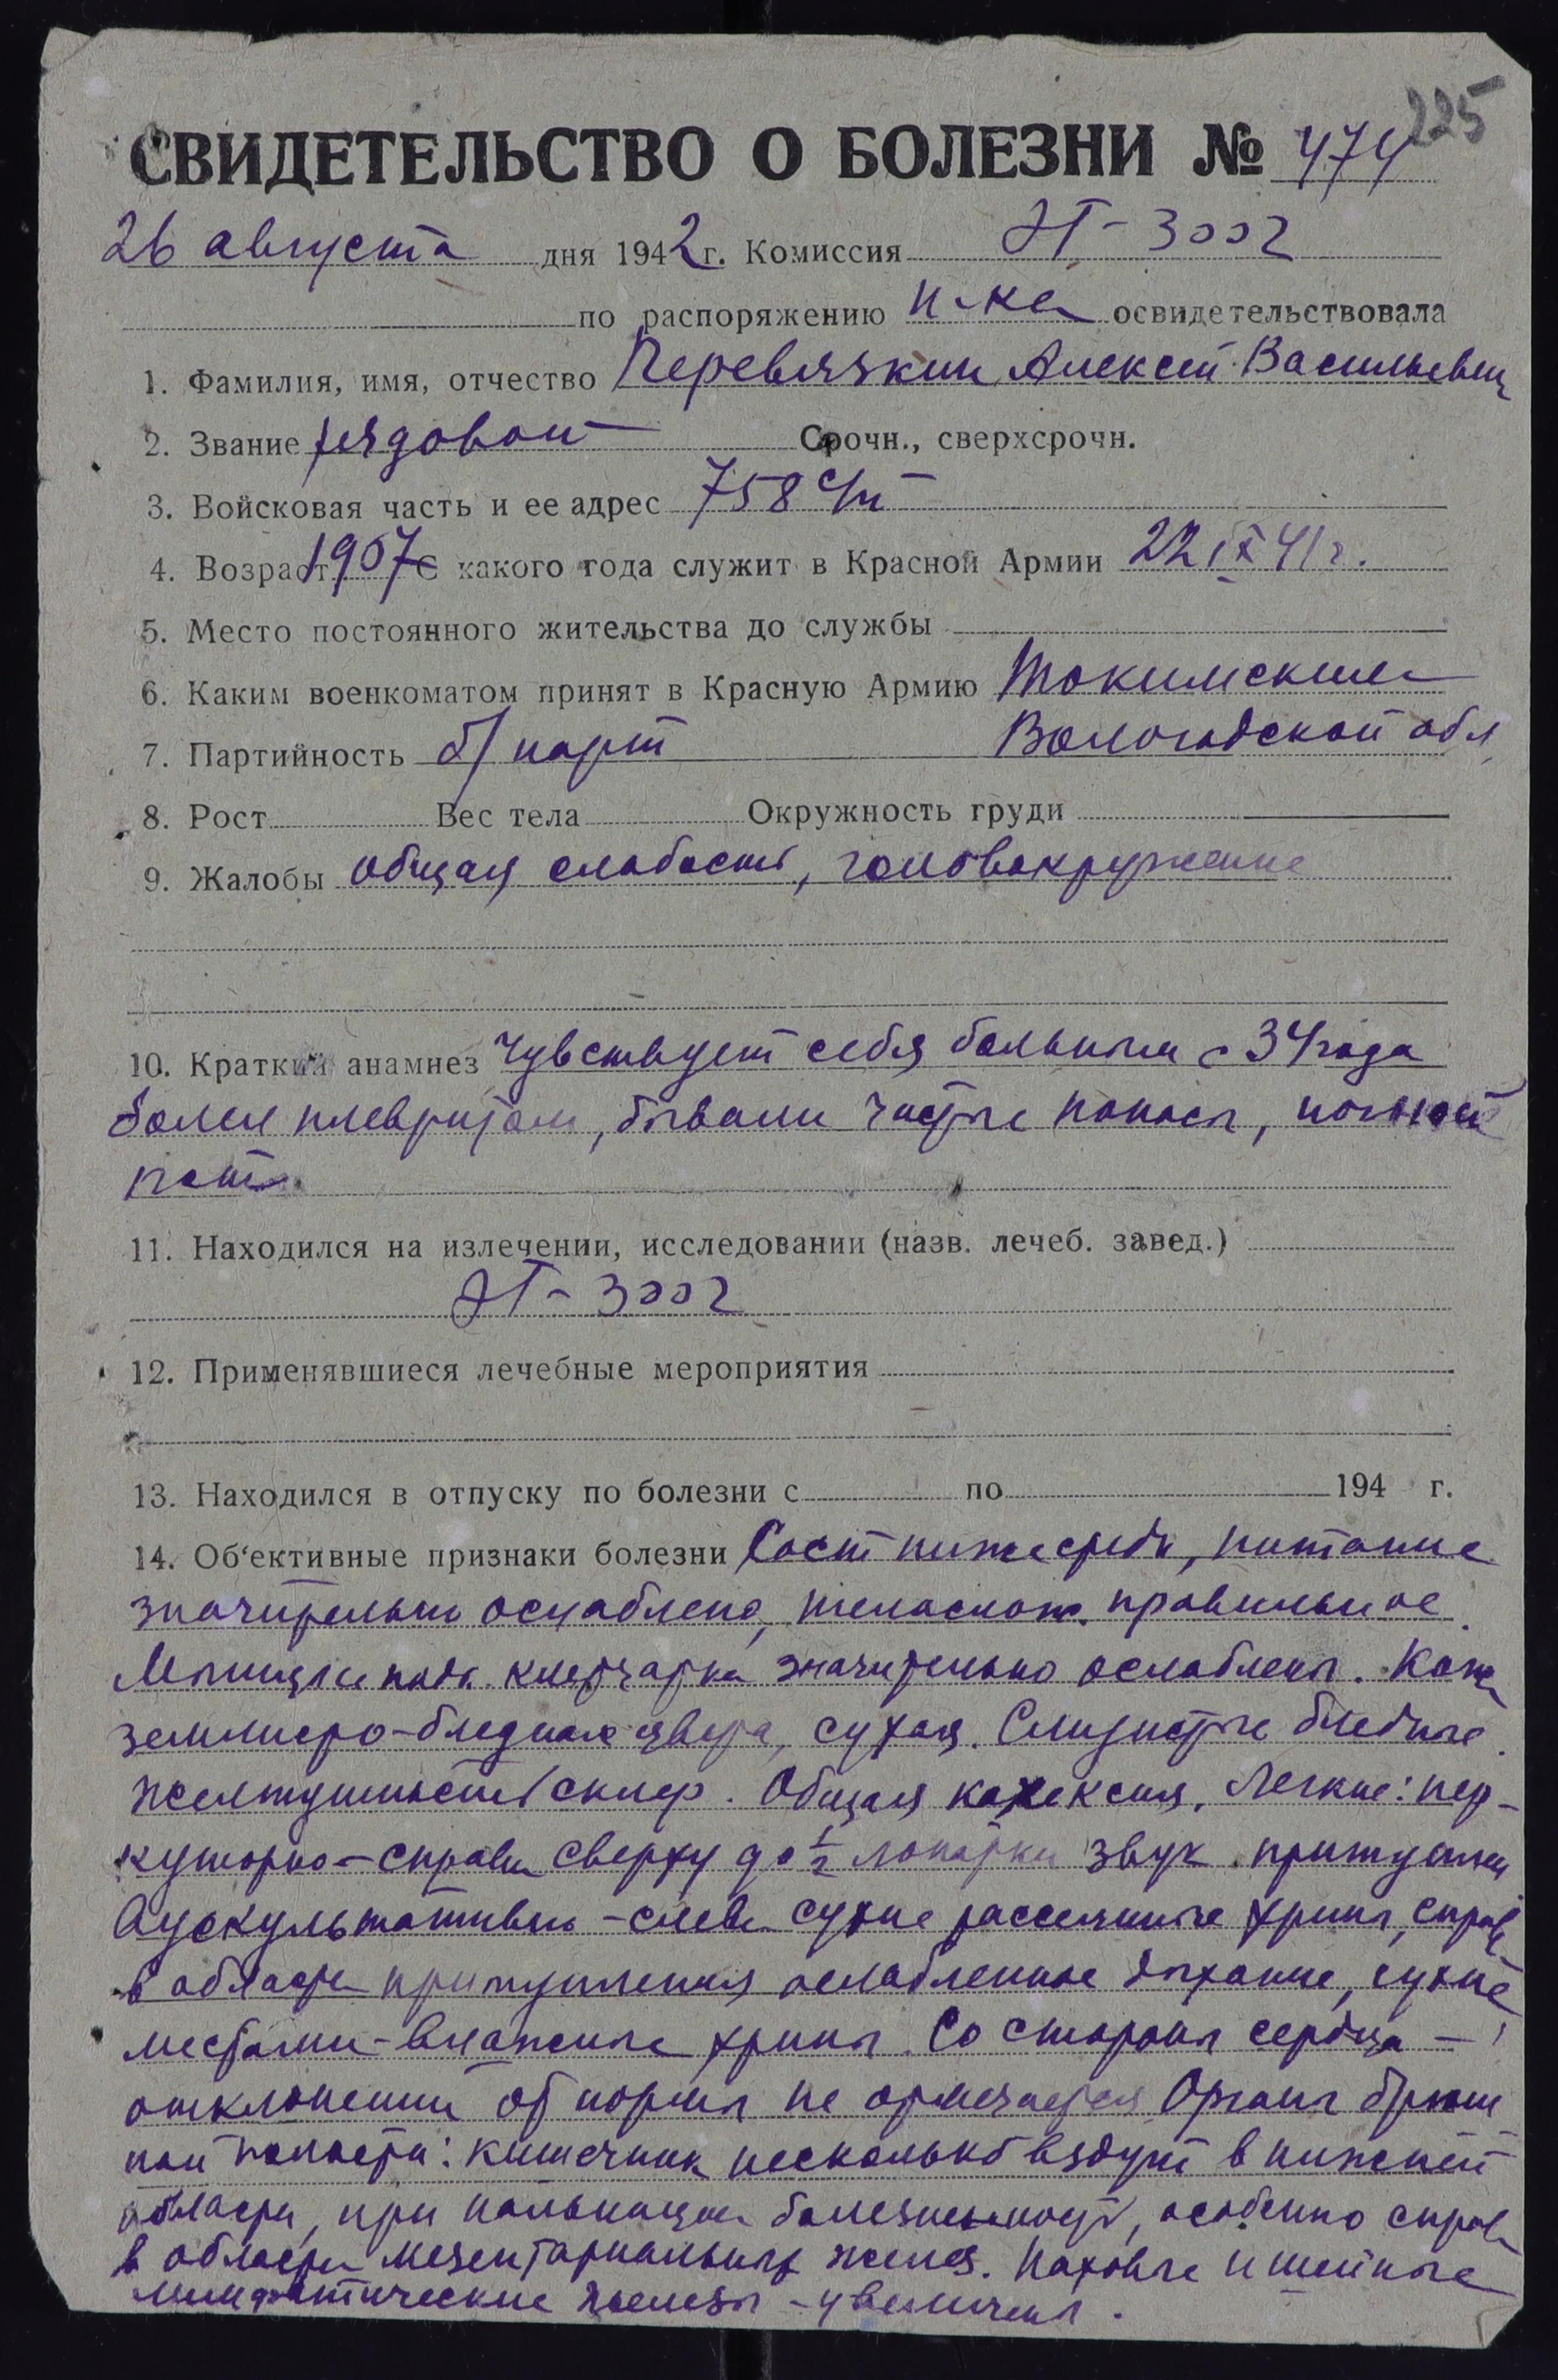 225
СВИДЕТЕЛЬСТВО О БОЛЕЗНИ № 474
26 августа дня 1942 г. Комиссия ЭГ-3002
по распоряжению н-ка освидетельствовала
1. Фамилия, имя, отчество Перевязкин Алексей Васильевич
2. Звание рядовой Срочн., сверхсрочн.
3. Войсковая часть и ее адрес 758 с/п
4. Возраст 1907 С какого года служит в Красной Армии 22 IX 41 г.
5. Место постоянного жительства до службы
6. Каким военкоматом принят в Красную Армию
7. Партийность б/парт Вологодской обл
8. Рост Вес тела Окружность груди
9. Жалобы общая слабость, головокружение
10. Краткий анамнез Чувствует себя больным с 34 года
болел плевритом, бывали частые поносы, ночной
пот.
11. Находился на излечении, исследовании (назв. лечеб. завед.)
ЭГ-3002
12. Применявшиеся лечебные мероприятия
13. Находился в отпуску по болезни с по 194 г.
14. Об'ективные признаки болезни Рост ниже средн, питание
значительно ослаблено, телослож. правильное.
Мышцы и подк. клетчатка значительно ослаблены. Кожа
землисто-бледного цвета, сухая. Слизистые бледные.
Желтушность склер. Общая кахексия. Легкие: пер-
куторно-справа сверху до 1/2 лопатки звук притуплен
Аускультативно-слева сухие рассеянные хрипы, справа
в области притупления ослабленное дыхание, сухие
местами-влажные хрипы. Со стороны сердца -
отклонений от нормы не отмечается Органы брюш
ной полости: кишечник несколько вздут в нижней
области, при пальпации болезненность, особенно справа
в области мезентариальных желез. Паховые и шейные
лимфатические железы - увеличены.